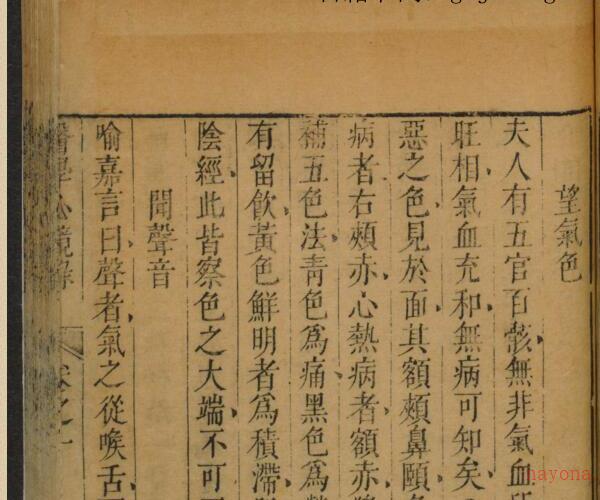 望氣色
夫人有五官百骸無非氣血
旺相氣血充和無病可知矣
惡之色見於面其額頰鼻頤
病者右頰赤心熱病者額赤
補五色法青色爲痛黑色爲
有留飲黃色鮮明者爲積滯
陰經此皆察色之大端不可
聞聲音
喻嘉言曰聲者氣之從喉舌
醫學心鏡錄
卷之一
nayona